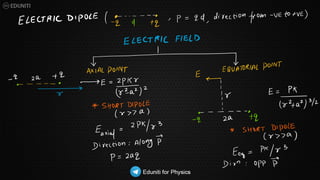 EDUNITI
ELECTRIC DIPOLE ( -q d +q , P = qd, direction from -ve to +ve)
ELECTRIC FIELD
AXIAL POINT
-q 2a +q
r
E = 2PKr / (r²-a²)²
* SHORT DIPOLE
(r>>a)
E axial = 2PK/r³
Direction: Along P⃗
P = 2aq
EQUATORIAL POINT
E
r
-q 2a +q
E = PK / (r²+a²)^3/2
* SHORT DIPOLE
(r>>a)
Eeq = PK/r³
Dirⁿ: OPP P⃗
Eduniti for Physics